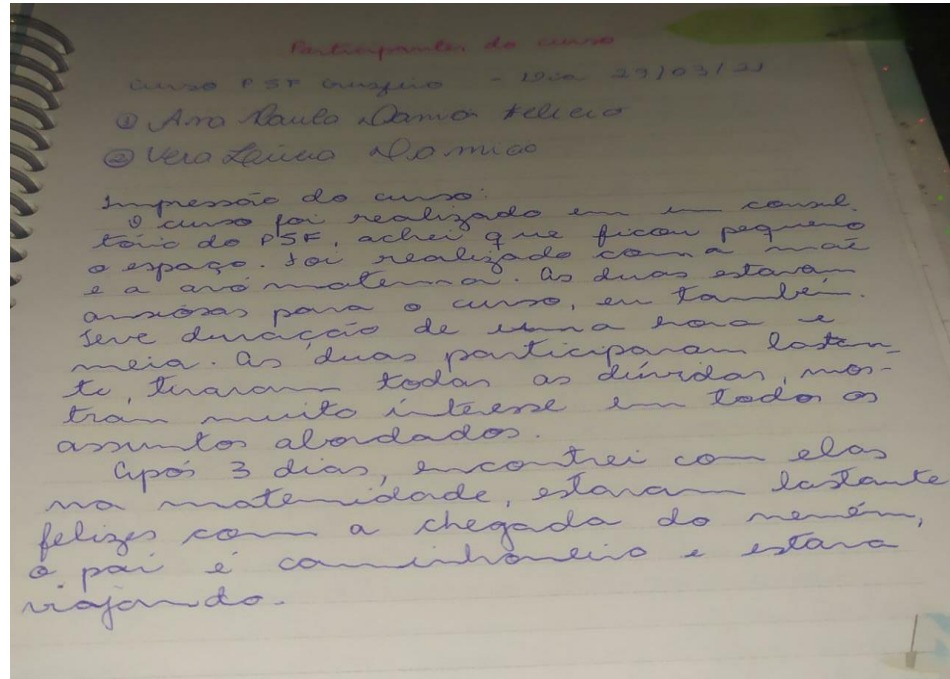 Participantes do curso
Curso PSF Cruzeiro - Dia 29/03/21
① Ana Paula Damas Felicio
② Vera Lúcia
Impressão do curso:
O curso foi realizado em um consul
tório do PSF, achei que ficou pequeno
o espaço. Foi realizado com a mãe
e a avó materna. As duas estavam
ansiosas para o curso, eu também.
Teve duração de uma hora e
meia. As duas participaram bastan-
te, tiraram todas as dúvidas, mos-
tram muito interesse em todos os
assuntos abordados.
Após 3 dias, encontrei com elas
na maternidade, estavam bastante
felizes com a chegada do neném,
o pai é caminhoneiro e estava
viajando.